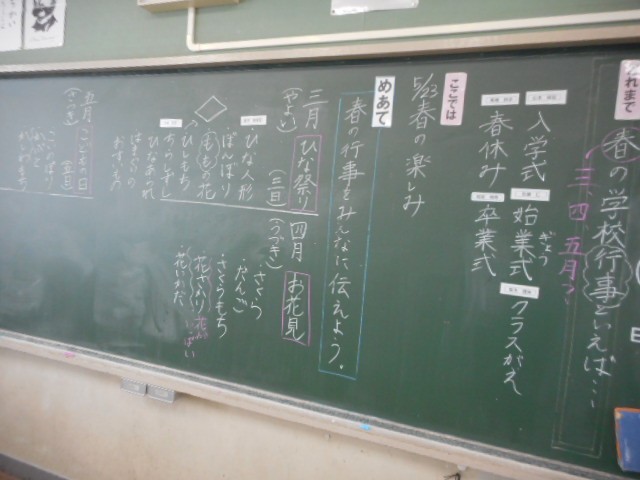 これまで
春の学校行事といえば…
三、四、五月？
入学式
始業式
ぎょう
クラスがえ
春休み
卒業式
ここでは
5/23 春の楽しみ
めあて
春の行事をみんなに伝えよう。
三月
(やよい)
ひな祭り
(三日)
・ひな人形
ぼんぼり
ももの花
ひしもち
ひなあられ
四月
(うづき)
お花見
・さくら
・だんご
・さくらもち
・花ざかり
・花いかだ
五月
(さつき)
こどもの日
(五日)
こいのぼり
かぶと